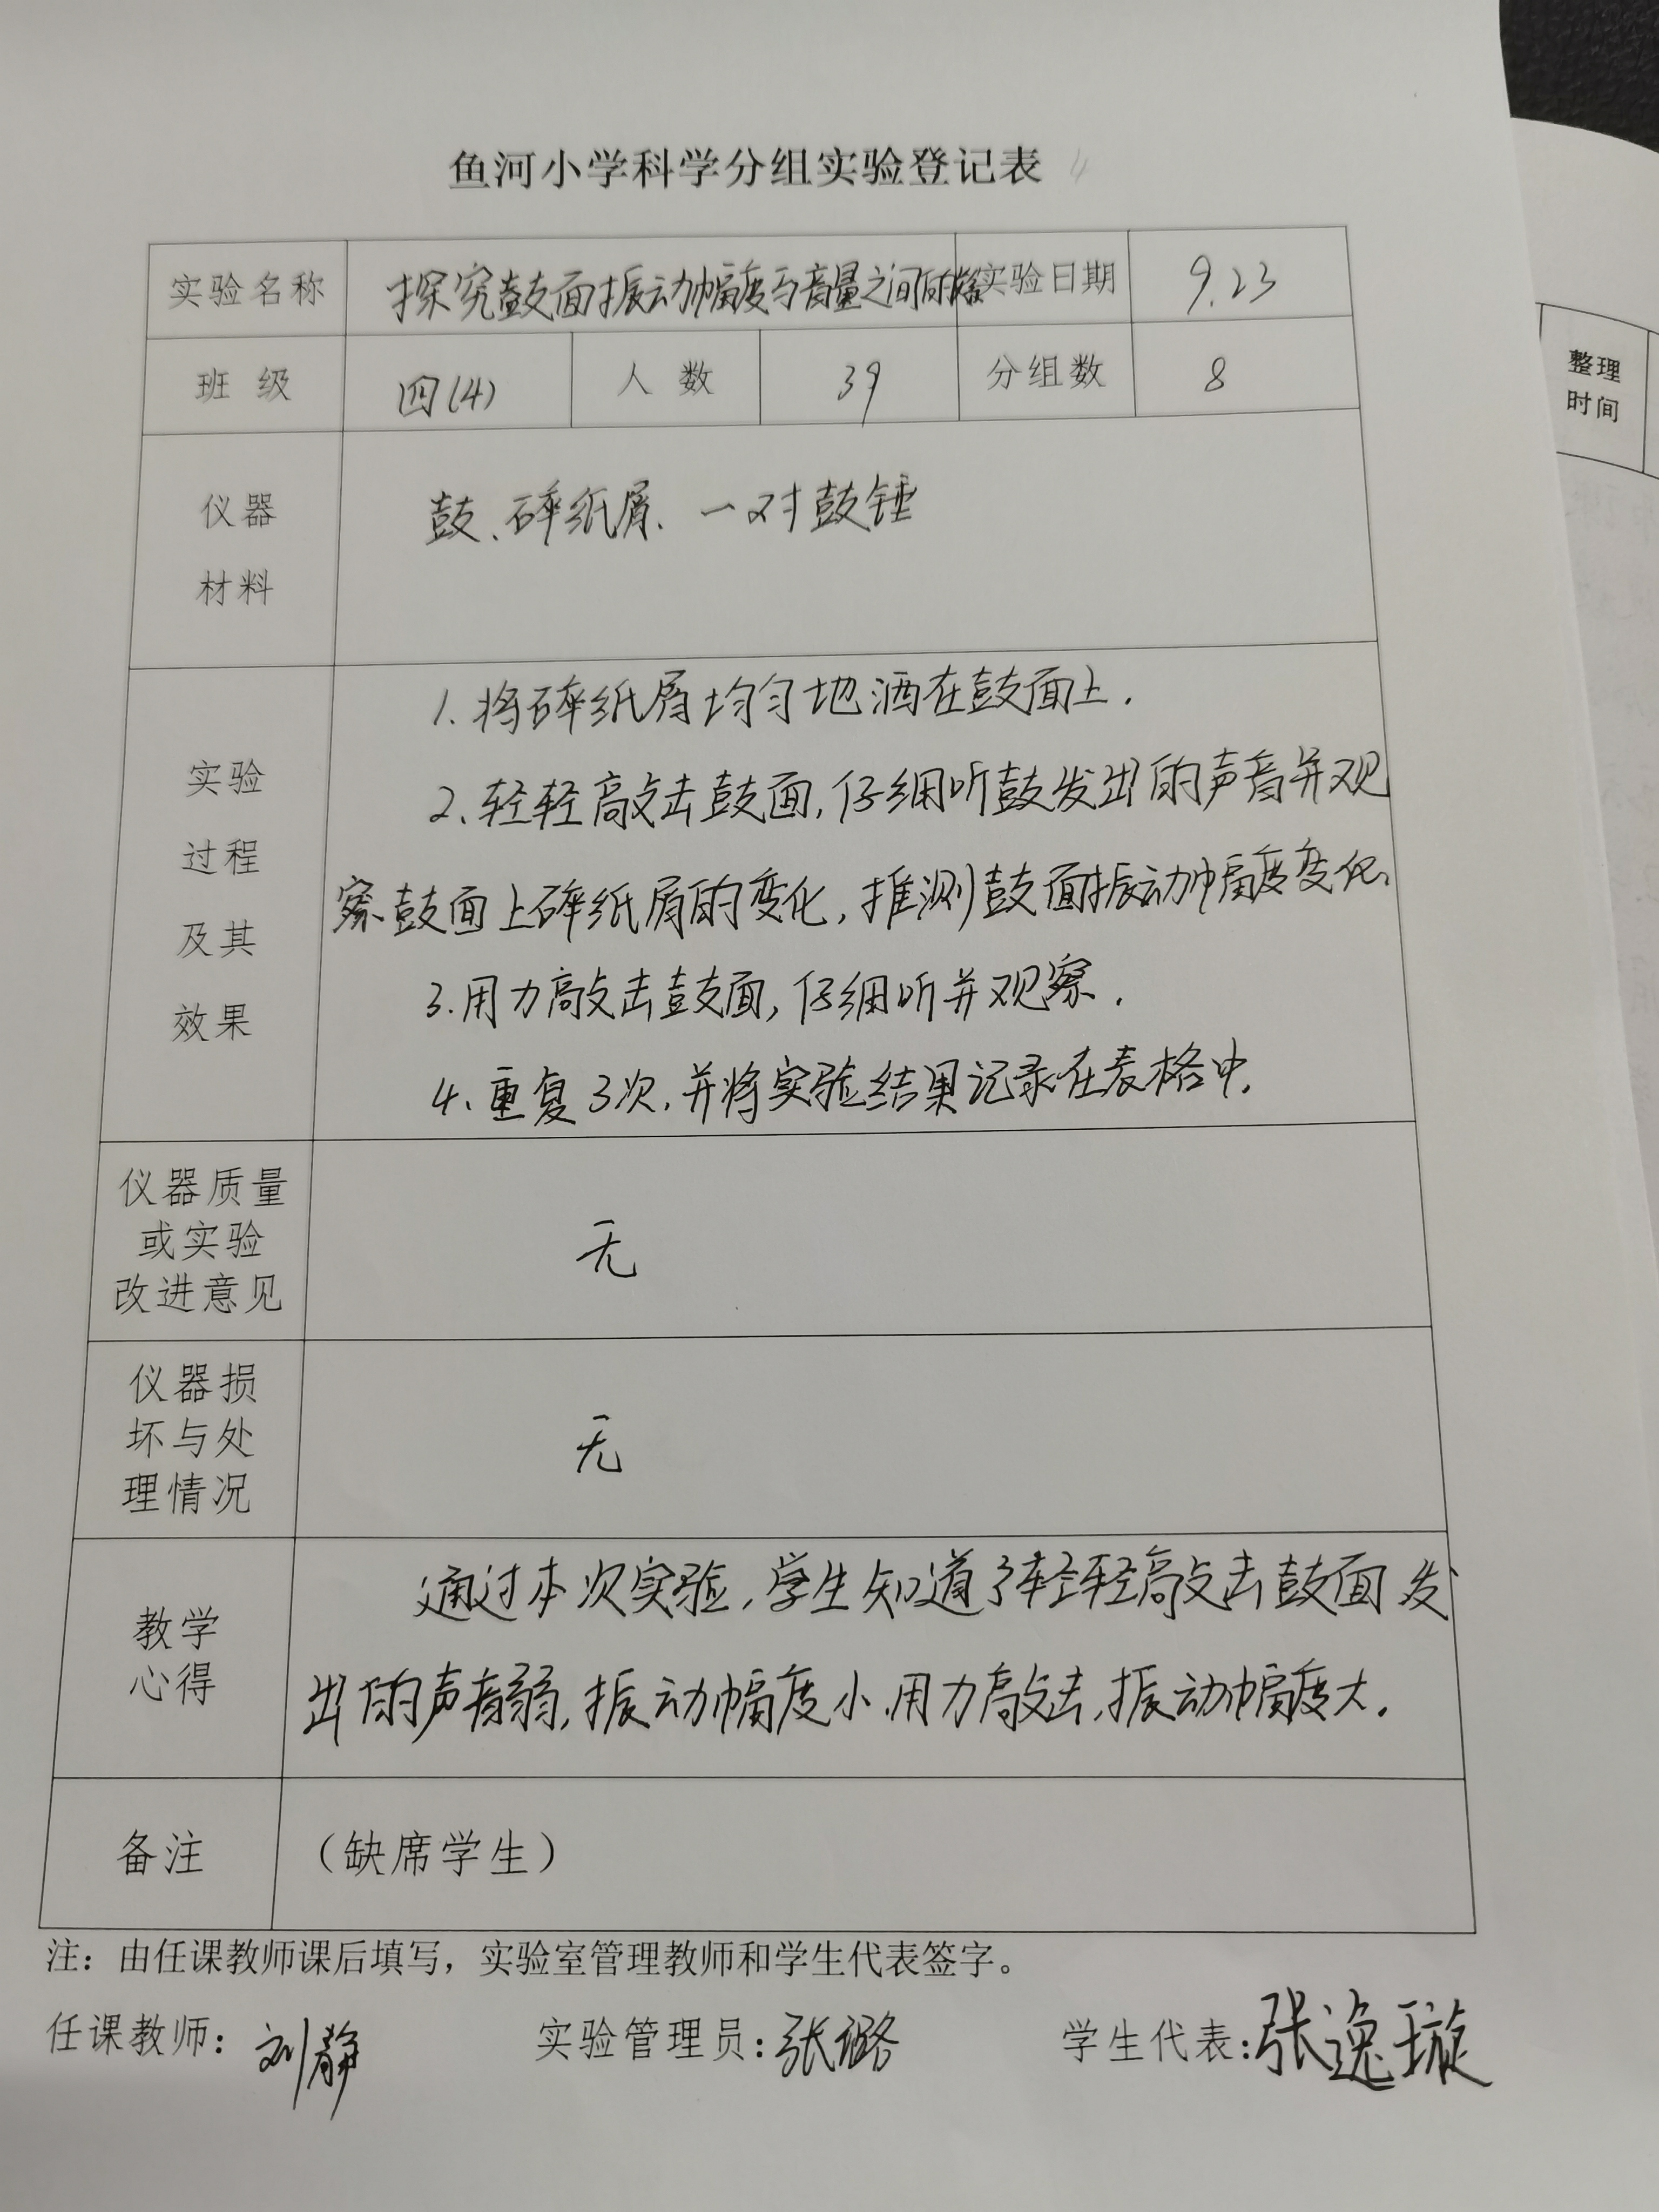 鱼河小学科学分组实验登记表
实验名称 探究鼓面振动幅度与音量之间的 实验日期 9.23
班 级 四(4) 人 数 39 分组数 8
仪器
材料
鼓、碎纸屑、一对鼓锤
实验
过程
及其
效果
1.将碎纸屑均匀地洒在鼓面上.
2、轻轻敲击鼓面,仔细听鼓发出的声音并观
察鼓面上碎纸屑的变化,推测鼓面振动幅度变化.
3.用力敲击鼓面,仔细听并观察.
4、重复3次,并将实验结果记录在表格中.
仪器质量
或实验
改进意见
无
仪器损
坏与处
理情况
无
教学
心得
通过本次实验,学生知道了轻轻敲击鼓面发
出的声音弱,振动幅度小.用力敲击,振动幅度大.
备注 （缺席学生）
注：由任课教师课后填写，实验室管理教师和学生代表签字。
任课教师：刘静 实验管理员：张璐 学生代表：张逸璇
整理
时间